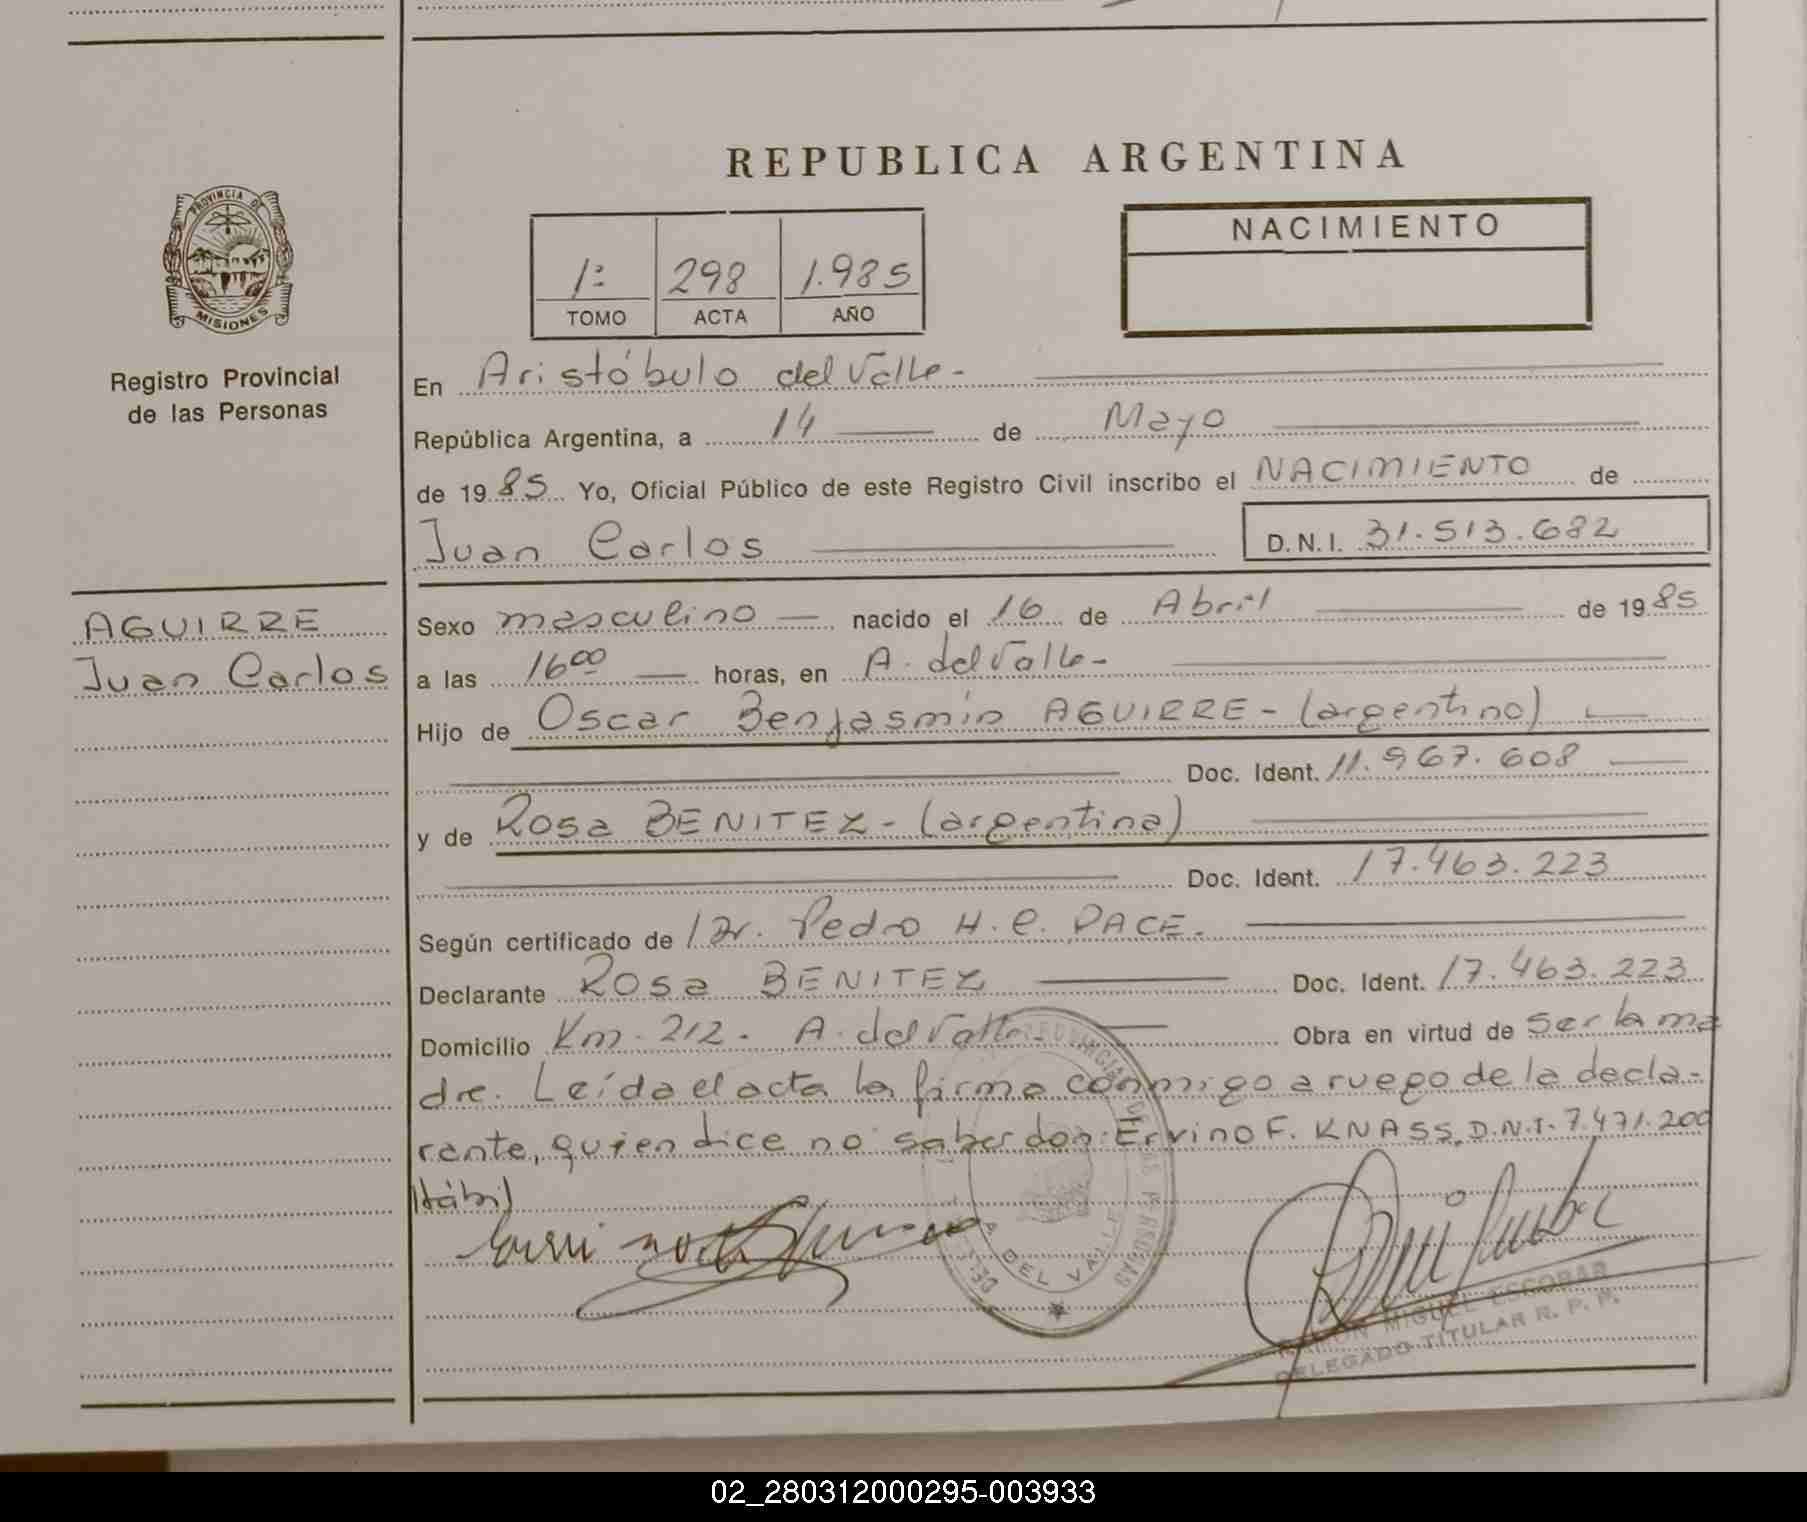 REPUBLICA ARGENTINA
PROVINCIA DE
MISIONES
Registro Provincial
de las Personas
1º 298 1.985
TOMO ACTA AÑO
NACIMIENTO
En Aristóbulo del Valle-
República Argentina, a 14 de Mayo
de 1985 Yo, Oficial Público de este Registro Civil inscribo el NACIMIENTO de
Juan Carlos D.N.I. 31.513.682
AGUIRRE
Juan Carlos
Sexo masculino nacido el 16 de Abril de 1985
a las 16 00 horas, en A. del Valle-
Hijo de Oscar Benjasmín AGUIRRE - (argentino)
Doc. Ident. 11.967.608
y de Rosa BENITEZ - (argentina)
Doc. Ident. 17.463.223
Según certificado de Dr. Pedro H. C. PACE.
Declarante Rosa BENITEZ Doc. Ident. 17.463.223
Domicilio Km. 212. A. del Valle- Obra en virtud de ser la ma
dre. Leída el acta la firma conmigo a ruego de la decla-
rante, quien dice no saber don: Ervino F. KNASS, D.N.I. 7.471.200
Hábil
DEL VALLE
RAMON MIGUEL ESCOBAR
DELEGADO TITULAR R. P. P.
02_280312000295-003933